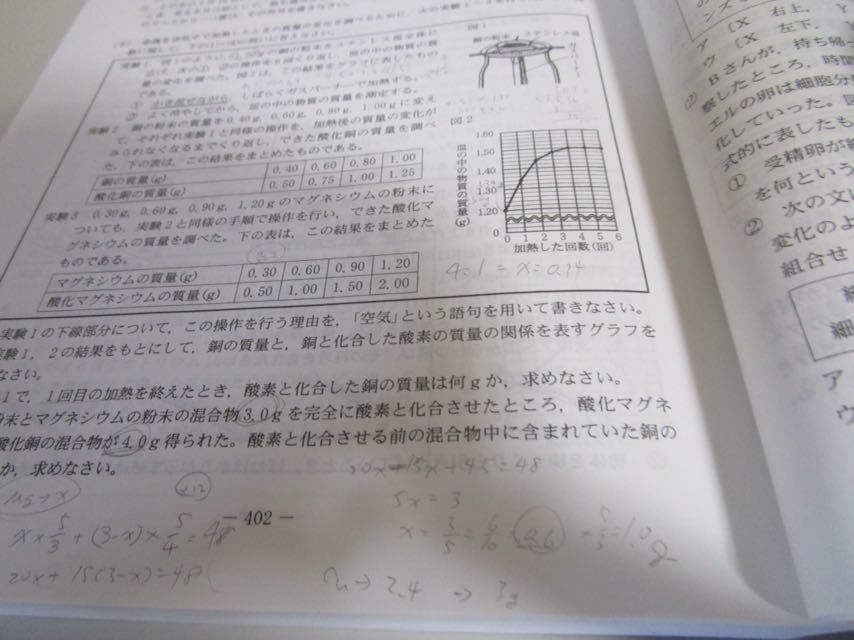 実験1 図1のように, 1.20gの銅の粉末をステンレス皿全体に
広げ, 次の①, ②の操作を5回くり返し, 皿の中の物質の質
量の変化を調べた。図2は, この結果をグラフに表したもの
である。
① よくかき混ぜながら, しばらくガスバーナーで加熱する。
② よく冷やしてから, 皿の中の物質の質量を測定する。
実験2 銅の粉末の質量を0.40g, 0.60g, 0.80g, 1.00gに変え
て, それぞれ実験1と同様の操作を, 加熱後の質量の変化が
みられなくなるまでくり返し, できた酸化銅の質量を調べ
た。下の表は, この結果をまとめたものである。
銅の質量(g) 0.40 0.60 0.80 1.00
酸化銅の質量(g) 0.50 0.75 1.00 1.25
実験3 0.30g, 0.60g, 0.90g, 1.20gのマグネシウムの粉末に
ついても, 実験2と同様の手順で操作を行い, できた酸化マ
グネシウムの質量を調べた。下の表は, この結果をまとめた
ものである。
マグネシウムの質量(g) 0.30 0.60 0.90 1.20
酸化マグネシウムの質量(g) 0.50 1.00 1.50 2.00
図1
銅の粉末
ステンレス皿
図2
皿の中の物質の質量(g)
1.60
1.50
1.40
1.30
1.20
0
0 1 2 3 4 5 6
加熱した回数(回)
実験1の下線部分について, この操作を行う理由を, 「空気」という語句を用いて書きなさい。
実験1, 2の結果をもとにして, 銅の質量と, 銅と化合した酸素の質量の関係を表すグラフを
なさい。
1で, 1回目の加熱を終えたとき, 酸素と化合した銅の質量は何gか, 求めなさい。
粉末とマグネシウムの粉末の混合物3.0gを完全に酸素と化合させたところ, 酸化マグネ
酸化銅の混合物が4.0g得られた。酸素と化合させる前の混合物中に含まれていた銅の
か, 求めなさい。
Mg→x
×12
x×5/3+(3-x)×5/4=48
20x+15(3-x)=48
20x-15x+45=48
5x=3
x=3/5=6/10
0.6
×5/3=1.0
g
2.4 → 3g
- 402 -
ア 〔X 右上,
ウ 〔X 左下,
Bさんが, 持ち帰
察したところ, 時間
エルの卵は細胞分
化していった。図
式的に表したも
① 受精卵が
を何という
② 次の文は
変化のよ
組合せ
細
ア
ウ